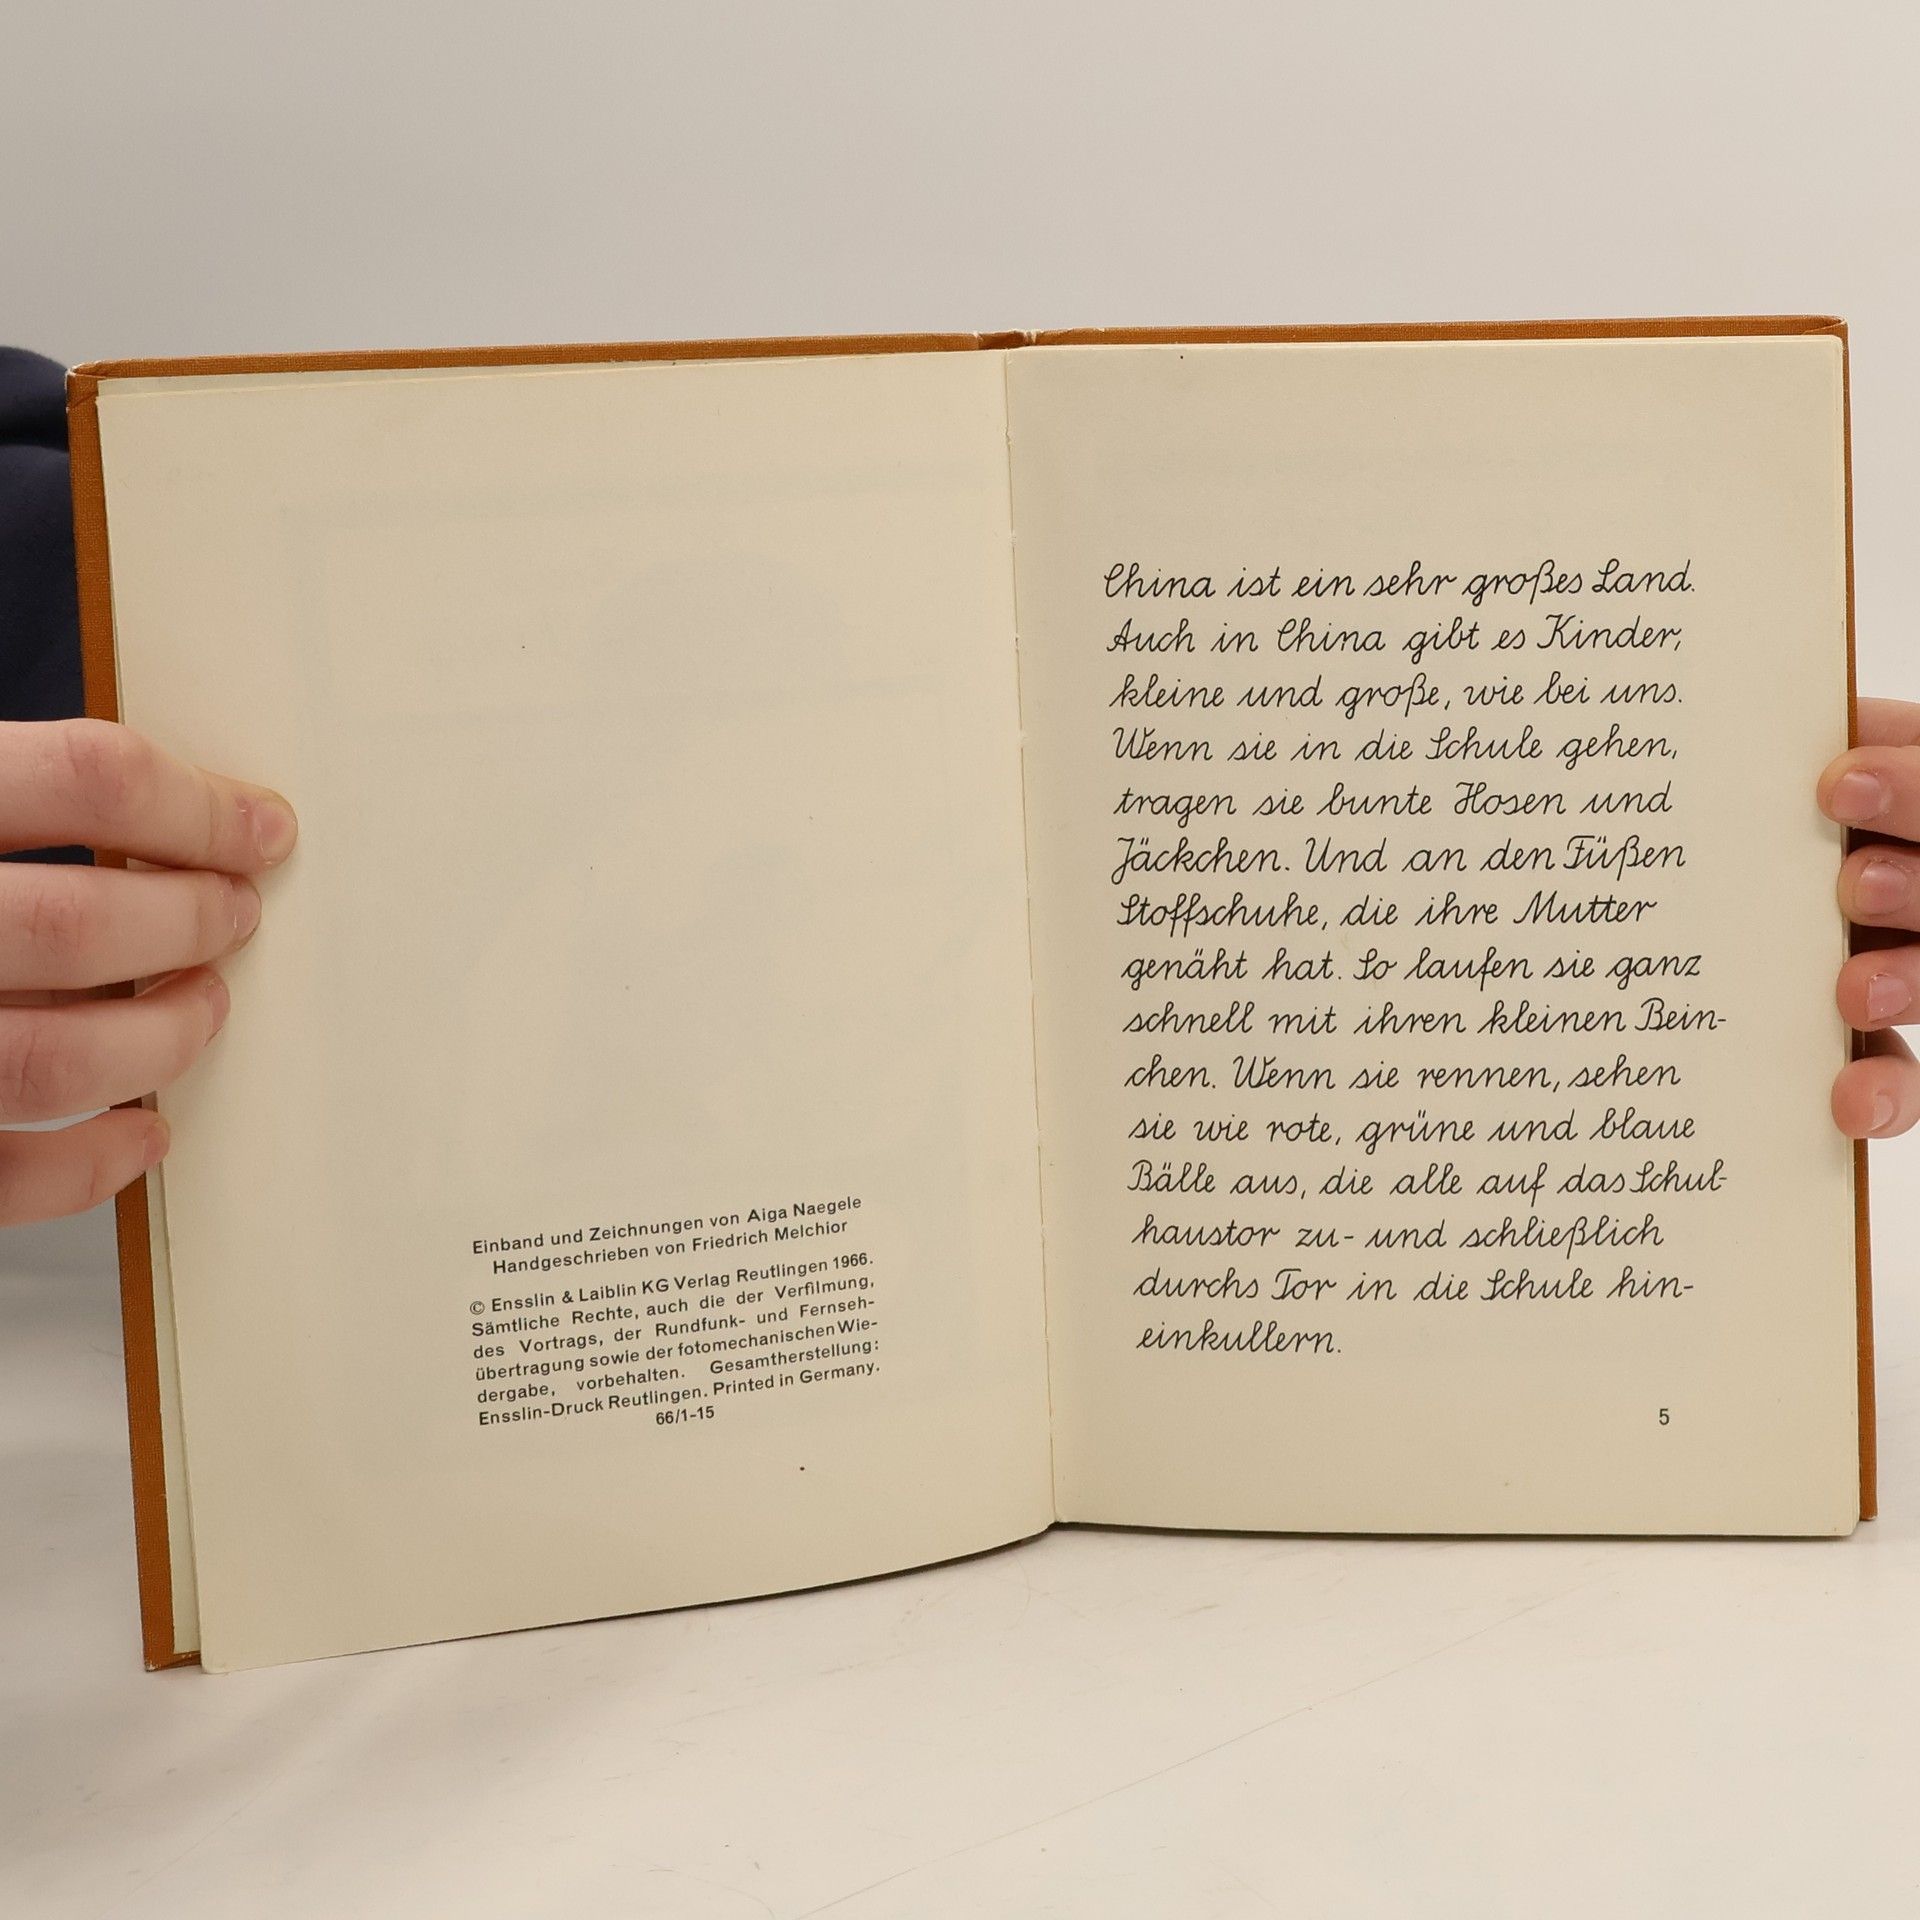 Einband und Zeichnungen von Aiga Naegele
Handgeschrieben von Friedrich Melchior
© Ensslin & Laiblin KG Verlag Reutlingen 1966.
Sämtliche Rechte, auch die der Verfilmung,
des Vortrags, der Rundfunk- und Fernseh-
übertragung sowie der fotomechanischen Wie-
dergabe, vorbehalten. Gesamtherstellung:
Ensslin-Druck Reutlingen. Printed in Germany.
66/1-15
China ist ein sehr großes Land.
Auch in China gibt es Kinder,
kleine und große, wie bei uns.
Wenn sie in die Schule gehen,
tragen sie bunte Hosen und
Jäckchen. Und an den Füßen
Stoffschuhe, die ihre Mutter
genäht hat. So laufen sie ganz
schnell mit ihren kleinen Bein-
chen. Wenn sie rennen, sehen
sie wie rote, grüne und blaue
Bälle aus, die alle auf das Schul-
haustor zu- und schließlich
durchs Tor in die Schule hin-
einkullern.
5